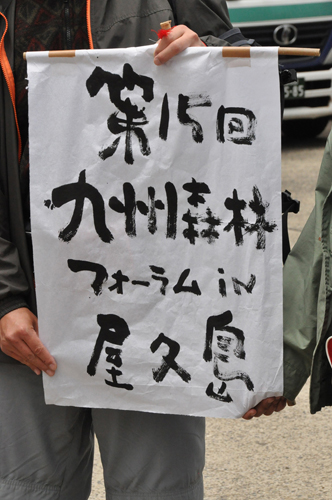 第15回
九州森林
フォーラム in
屋久島